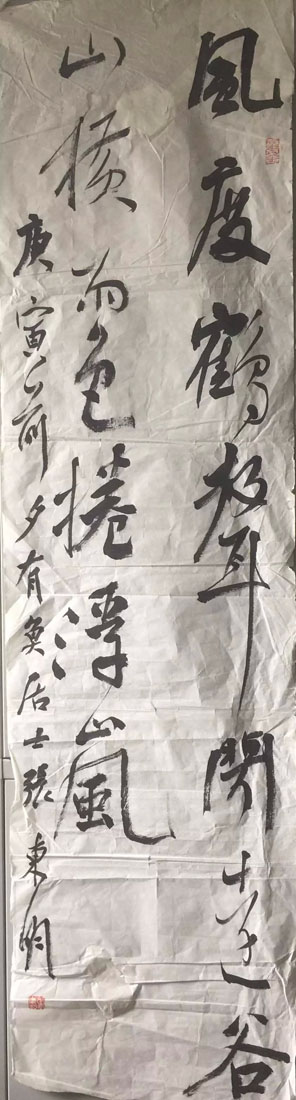 風度鶴聲聞遠谷
山橫雨色捲浮嵐
庚寅之前夕有居士張東明